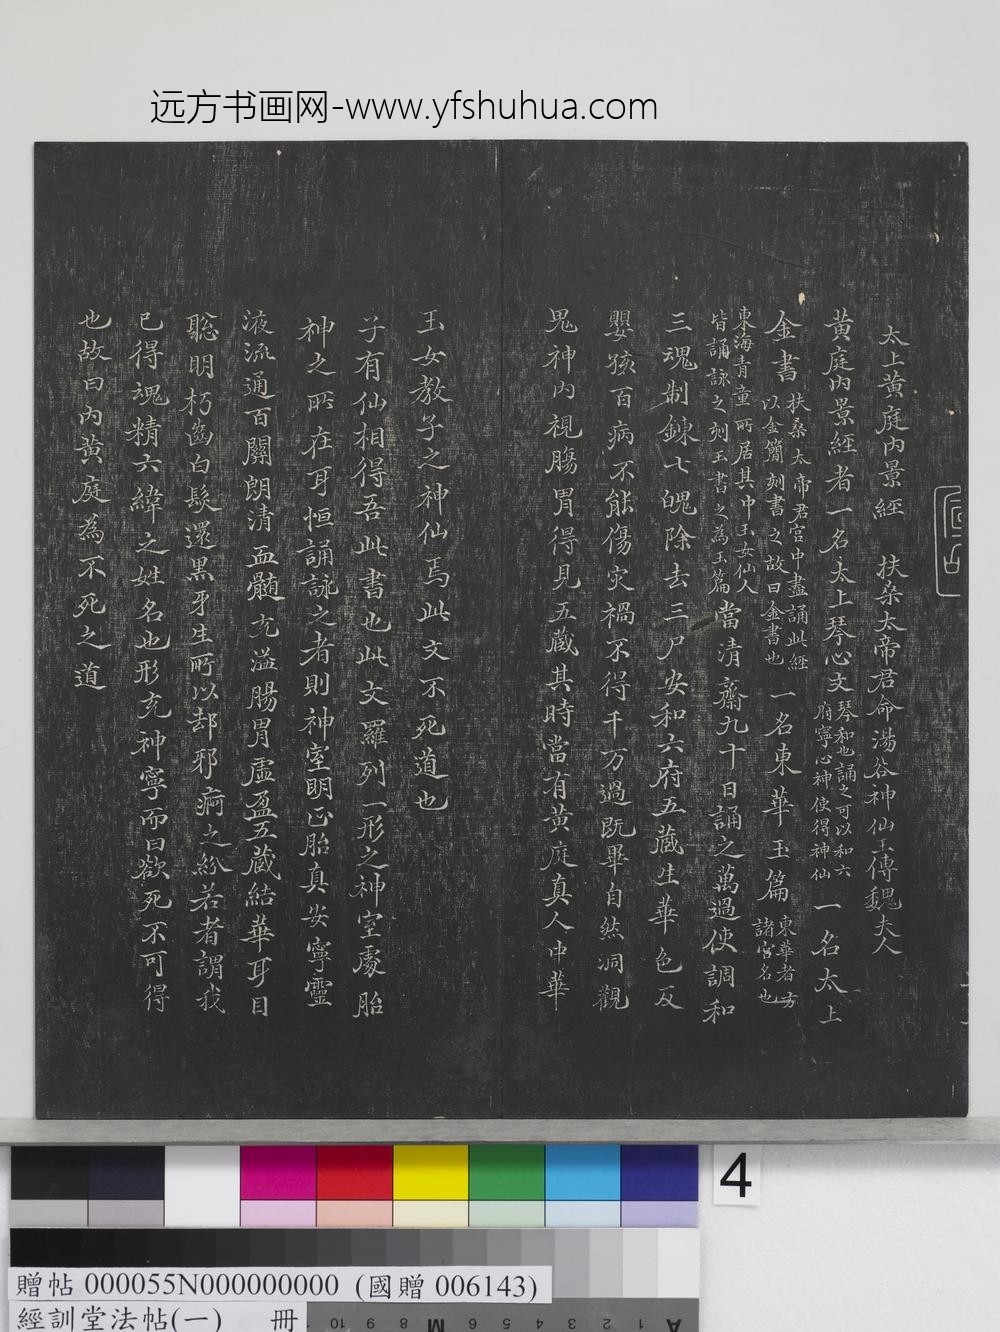 远方书画网-www.yfshuhua.com
太上黃庭內景經 扶桑大帝君命湯谷神仙王傳魏夫人
黃庭內景經者一名太上琴心文琴和也誦之可以和六府寧心神使得神仙一名太上
金書扶桑太帝君宮中盡誦此經以金簡刻書之故曰金書也一名東華玉篇東華者方諸宮名也
東海青童所居其中玉女仙人皆誦詠之刻玉書之為玉篇當清齋九十日誦之萬過使調和
三魂制鍊七魄除去三尸安和六府五藏生華色反
嬰孩百病不能傷灾禍不得千万過既畢自然洞觀
鬼神內視腸胃得見五藏其時當有黃庭真人中華
玉女教子之神仙焉此文不死道也
子有仙相得吾此書也此文羅列一形之神室處胎
神之所在耳恒誦詠之者則神室明正胎真安寧靈
液流通百關朗清血髓充溢腸胃虛盈五藏結華耳目
聡明朽齒白髮還黑牙生所以却邪痾之紛若者謂我
已得魂精六緯之姓名也形充神寧而曰欲死不可得
也故曰內黃庭為不死之道
4
贈帖 000055N000000000 (國贈 006143)
經訓堂法帖(一) 冊
10 9 8 M 6 5 4 3 2 1 A